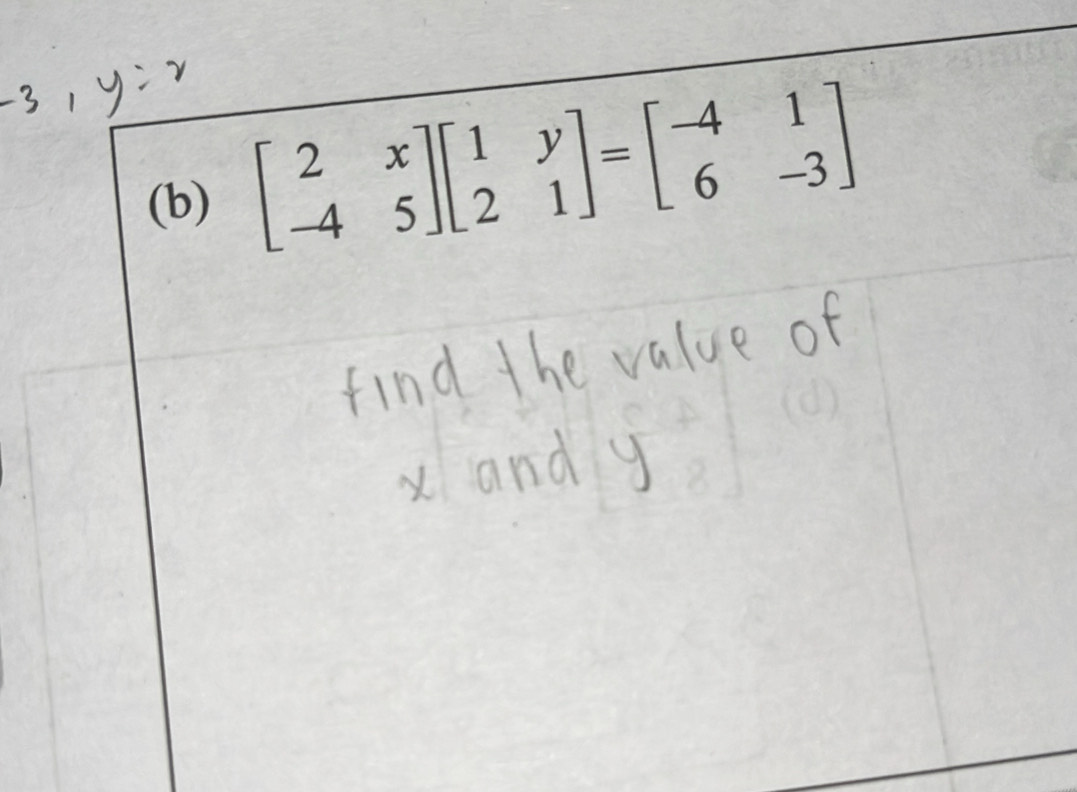 -3, y=2
(b) [2 x -4 5] [1 y 2 1] = [-4 1 6 -3]
find the value of
x and y